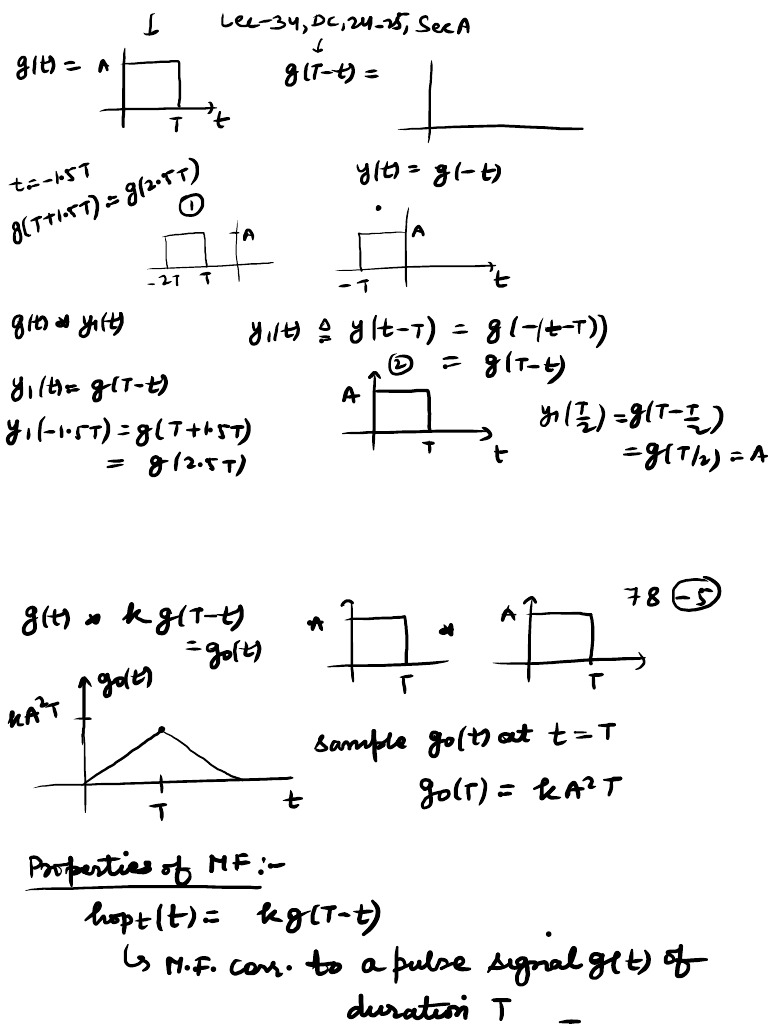 Lec-34, DC, 24-25, Sec A
g(t) = A T t
g(T-t) =
t=-1.5T
g(T+1.5T) = g(2.5T)
y(t) = g(-t)
① -2T T A
-T A t
g(t) * y1(t)
y1(t) ≜ y(t-T) = g(-(t-T))
② = g(T-t)
y1(t) = g(T-t)
y1(-1.5T) = g(T+1.5T)
= g(2.5T)
A T t
y1(T/2) = g(T-T/2)
= g(T/2) = A
78 -5
g(t) * k g(T-t)
= go(t)
A T * A T
go(t)
kA²T
T t
sample go(t) at t=T
go(T) = kA²T
Properties of MF:-
hopt(t) = kg(T-t)
↳ M.F. corr. to a pulse signal g(t) of
duration T